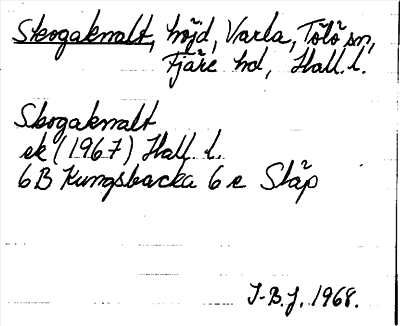 Skogaknalt, höjd, Varla, Tölö sn,
Fjäre hd, Hall. l.
Skogaknalt
ek (1967) Hall. l.
6B Kungsbacka 6 e Släp
I-B.J. 1968.